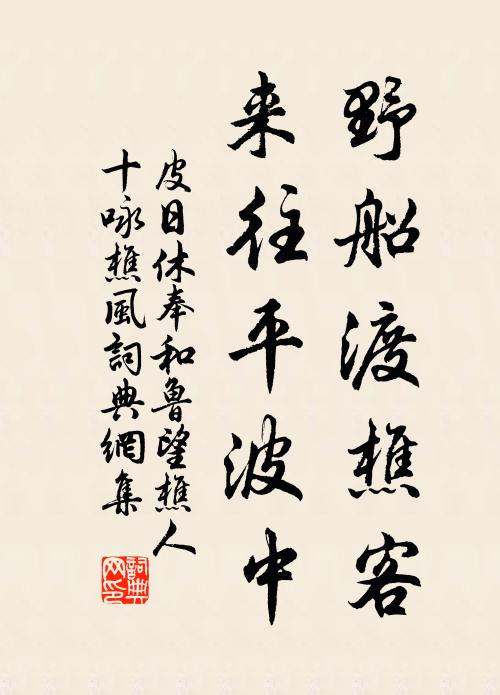 野船渡樵客
来往平波中
皮日休奉和鲁望樵人
十咏樵風詞典網集
詞典
网印